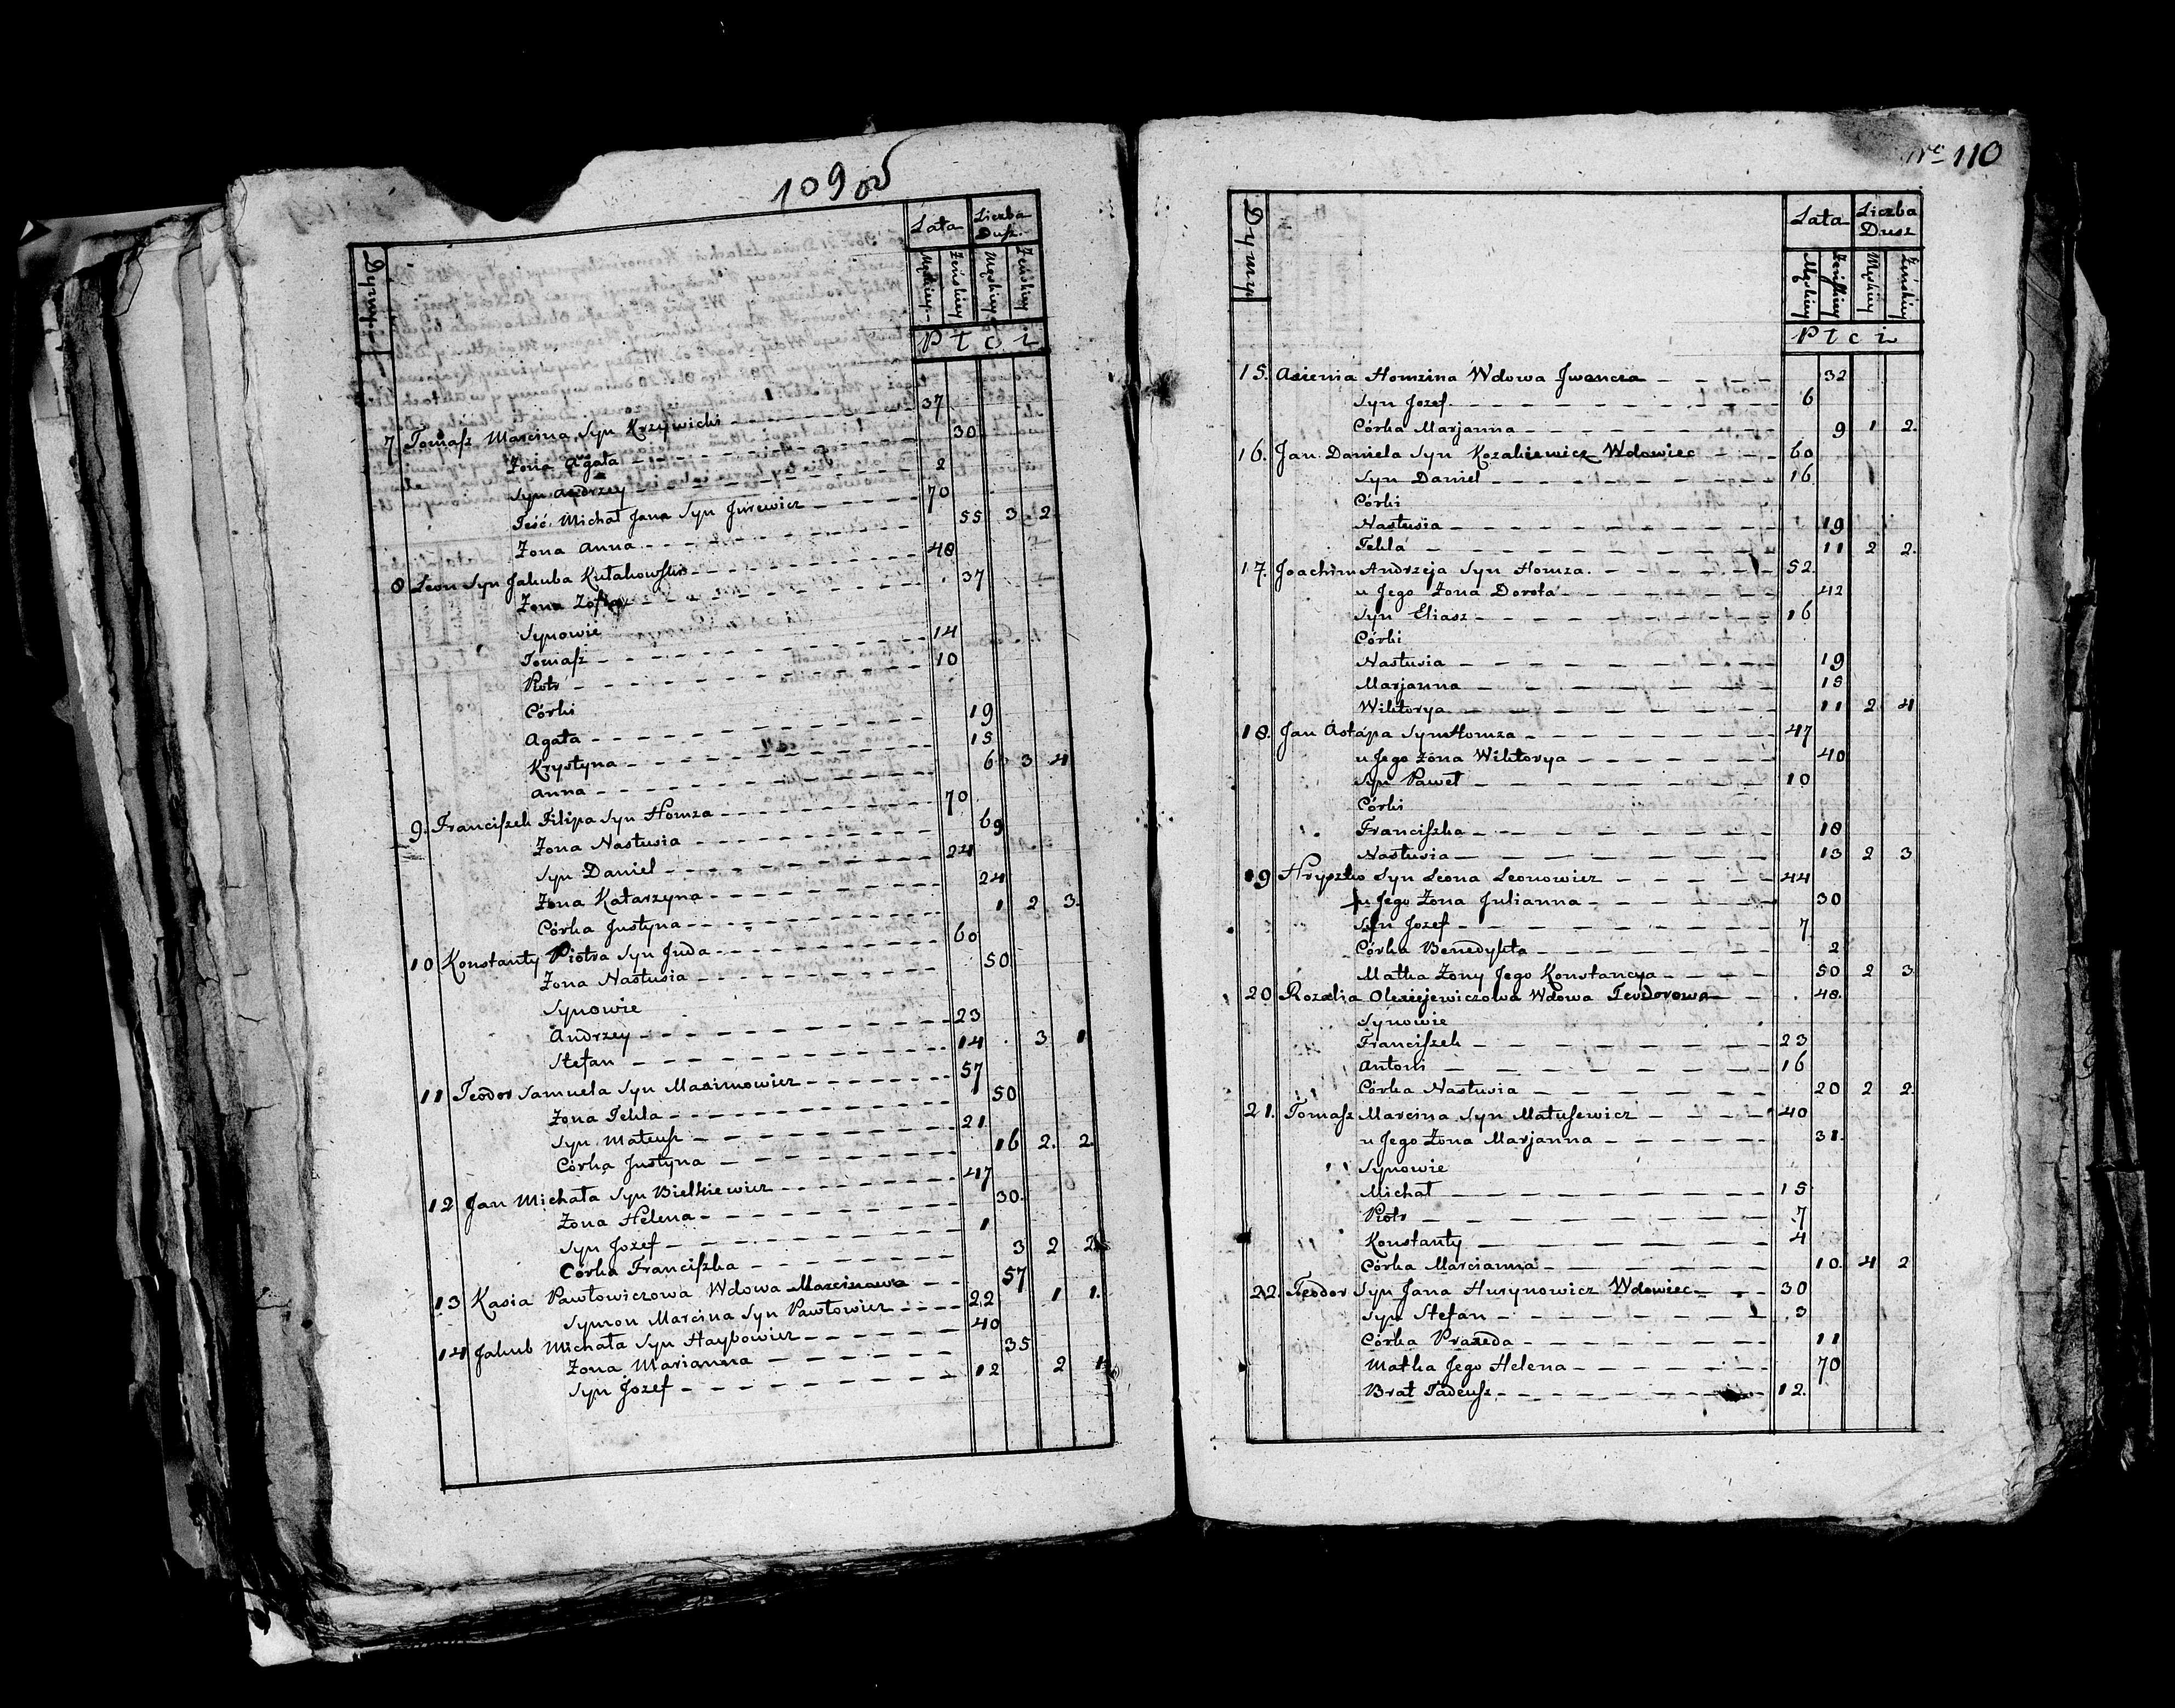 109 об
Dymy
Lata
Liczba Dusz.
Męskiey
Żeńskiey
Męskiey
Żeńskiey
Płci
7 Tomasz Marcina Syn Krzywicki 37
Żona Agata 30
Syn Andrzey 2
Teść Michał Jana Syn Jurewicz 70
Żona Anna 55 3 2
8 Leon Syn Jakuba Kułakowski 48
Żona Zofia 37
Synowie
Tomasz 14
Piotr 10
Córki
Agata 19
Krystyna 15
Anna 6 3 4
9. Franciszek Filipa Syn Homza 70
Żona Nastusia 69
Syn Daniel 24
Żona Katarzyna 24
Córka Justyna 1 2 3.
10 Konstanty Piotra Syn Juda 60
Żona Nastusia 50
Synowie
Andrzey 23
Stefan 14 3 1
11 Teodor Samuela Syn Maximowicz 57
Żona Tekla 50
Syn Mateusz 21
Córka Justyna 16 2. 2.
12 Jan Michała Syn Bielkiewicz 47
Żona Helena 30.
Syn Jozef 1
Córka Franciszka 3 2 2
13 Kasia Pawłowiczowa Wdowa Marcinowa 57
Symon Marcina Syn Pawłowicz 22 1 1.
14 Jakub Michała Syn Haybowicz 40
Żona Marianna 35
Syn Jozef 12 2 1
110
Dymy
Lata
Liczba Dusz
Męskiey
Żeńskiey
Męskiey
Żeńskiey
Płci
15. Axienia Homzina Wdowa Jwancza 32
Syn Jozef 6
Córka Marjanna 9 1 2.
16. Jan Daniela Syn Kozakiewicz Wdowiec 60
Syn Daniel 16
Córki
Nastusia 19
Tekla 11 2 2.
17. Joachim Andrzeja Syn Homza. 52.
u Jego Żona Dorota 42
Syn Eliasz 16
Córki
Nastusia 19
Marjanna 15
Wiktorya 11 2 4
18. Jan Astapa Syn Homza 47
u Jego Żona Wiktorya 40
Syn Paweł 10
Córki
Franciszka 18
Nastusia 13 2 3
19 Hryszko Syn Leona Leonowicz 44
u Jego Żona Julianna 30
Syn Jozef 7
Córka Benedykta 2
Matka Żony Jego Konstancya 50 2 3
20 Rozalia Olexiejewiczowa Wdowa Teodorowa 48.
Synowie
Franciszek 23
Antoni 16
Córka Nastusia 20 2 2.
21. Tomasz Marcina Syn Matusewicz 40
u Jego Żona Marjanna 31.
Synowie
Michał 15
Piotr 7
Konstanty 4
Córka Marcianna 10. 4 2
22. Teodor Syn Jana Husynowicz Wdowiec 30
Syn Stefan 3
Córka Praxeda 11
Matka Jego Helena 70
Brat Tadeusz 12.